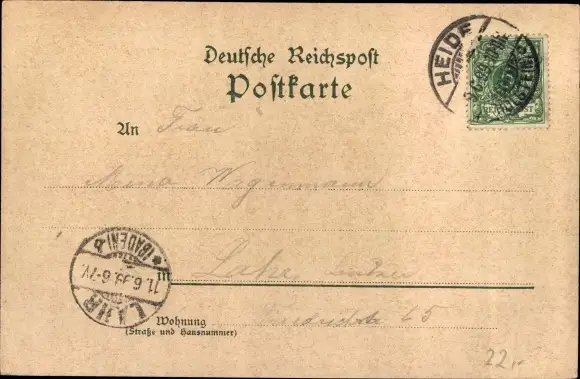 Deutsche Reichspost
Postkarte
HEIDE
(HOLSTEIN)
An Frau
Anna Wegenmann
in Lahr, Baden
LAHR
* (BADEN) *
11.6.99.6-7N.
Wohnung
(Straße und Hausnummer)
65
22,-